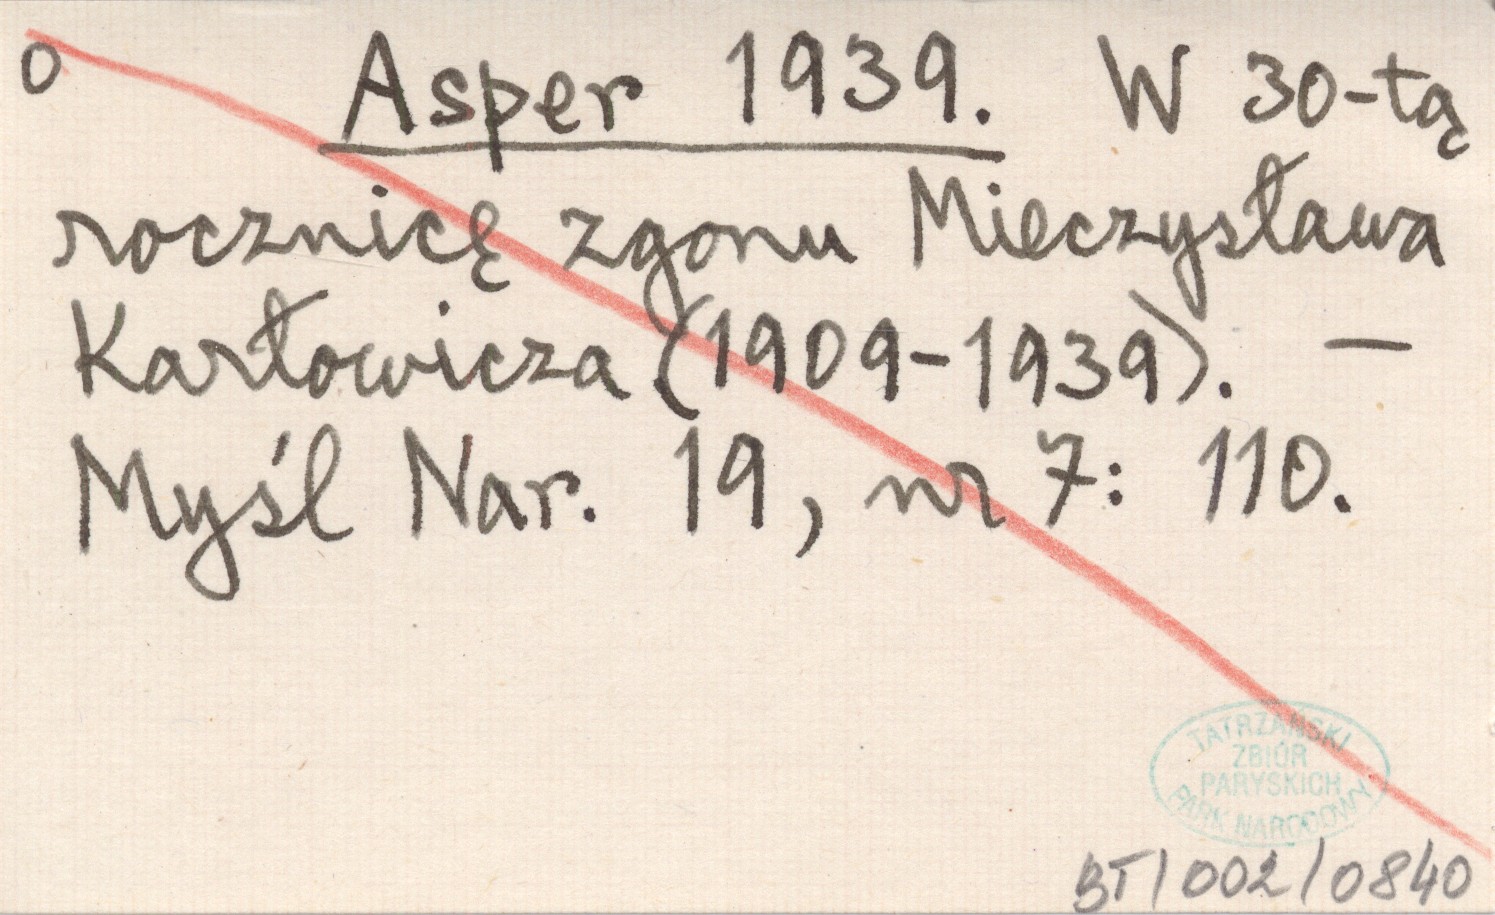 o Asper 1939. W 30-tą
rocznicę zgonu Mieczysława
Karłowicza (1909-1939). —
Myśl Nar. 19, nr 7: 110.
TATRZAŃSKI
ZBIÓR
PARYSKICH
PARK NARODOWY
BT/002/0840